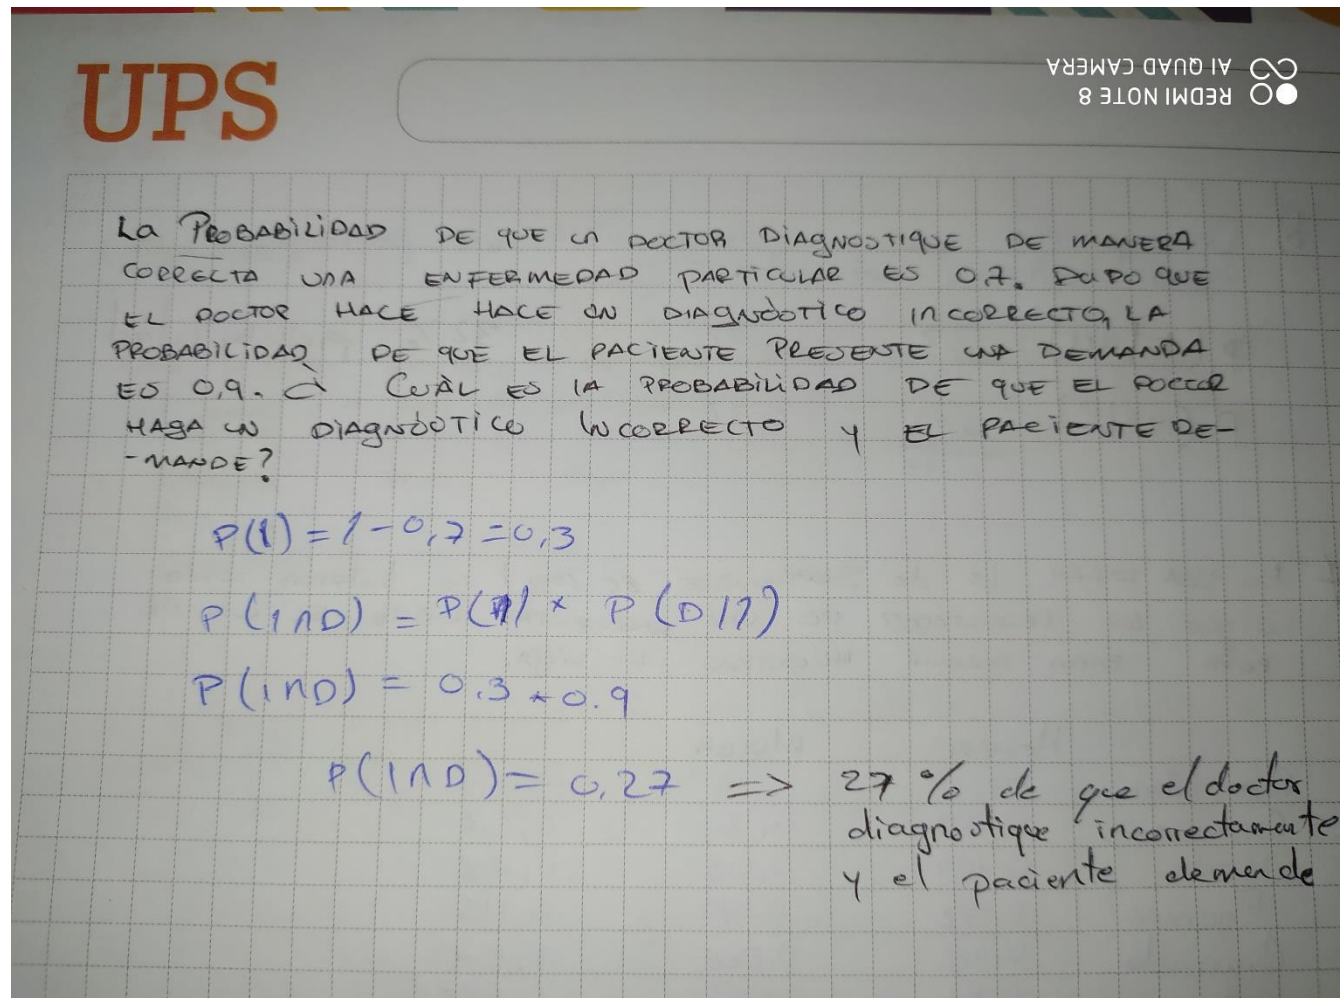 UPS
REDMI NOTE 8
AI QUAD CAMERA
La PROBABILIDAD DE QUE UN DOCTOR DIAGNOSTIQUE DE MANERA
CORRECTA UNA ENFERMEDAD PARTICULAR ES 0,7. DADO QUE
EL DOCTOR HACE HACE UN DIAGNÒSTICO INCORRECTO, LA
PROBABILIDAD DE QUE EL PACIENTE PRESENTE UNA DEMANDA
ES 0,9. ¿ CUÀL ES LA PROBABILIDAD DE QUE EL DOCTOR
HAGA UN DIAGNÒSTICO INCORRECTO Y EL PACIENTE DE-
-MANDE?
P(1) = 1 - 0,7 = 0,3
P(1∩D) = P(1) * P(D/1)
P(1∩D) = 0.3 * 0.9
P(1∩D) = 0,27 => 27 % de que el doctor
diagnostique incorrectamente
y el paciente demande